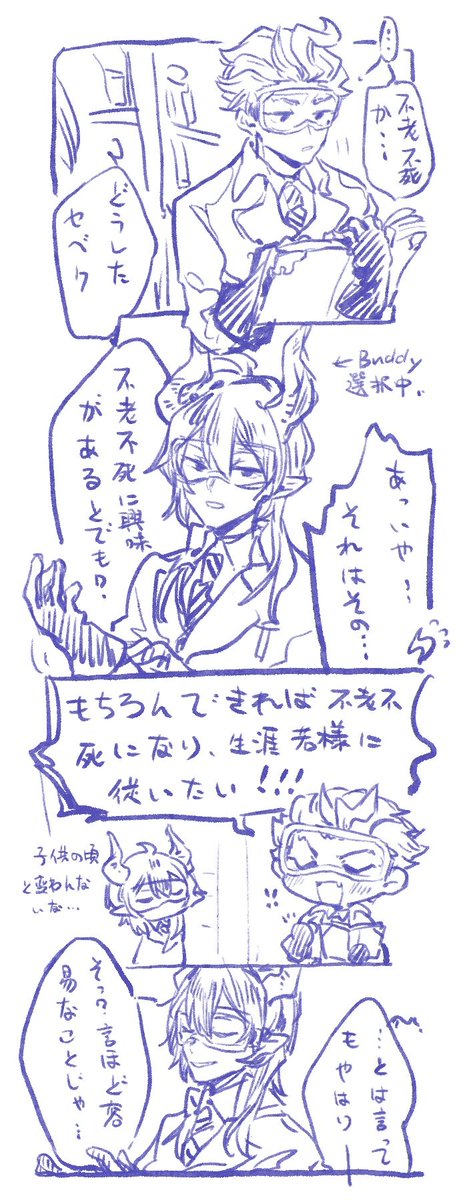 …
不老不死
か…
どうした
セベク
←Buddy
選択中。
不老不死に興味
があるとでも？
あっいや…
それはその…
もちろんできれば不老不
死になり、生涯若様に
従いたい!!!
子供の頃
と変わんな
いな…
…とは言って
もやはりー
そっ？言ほど容
易なことじゃ…